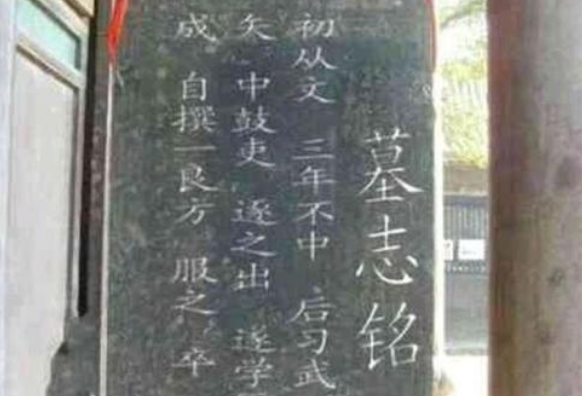 墓志铭
初从文 三年不中 后习武
矢 中鼓吏 逐之出 遂学
成 自撰一良方 服之 卒